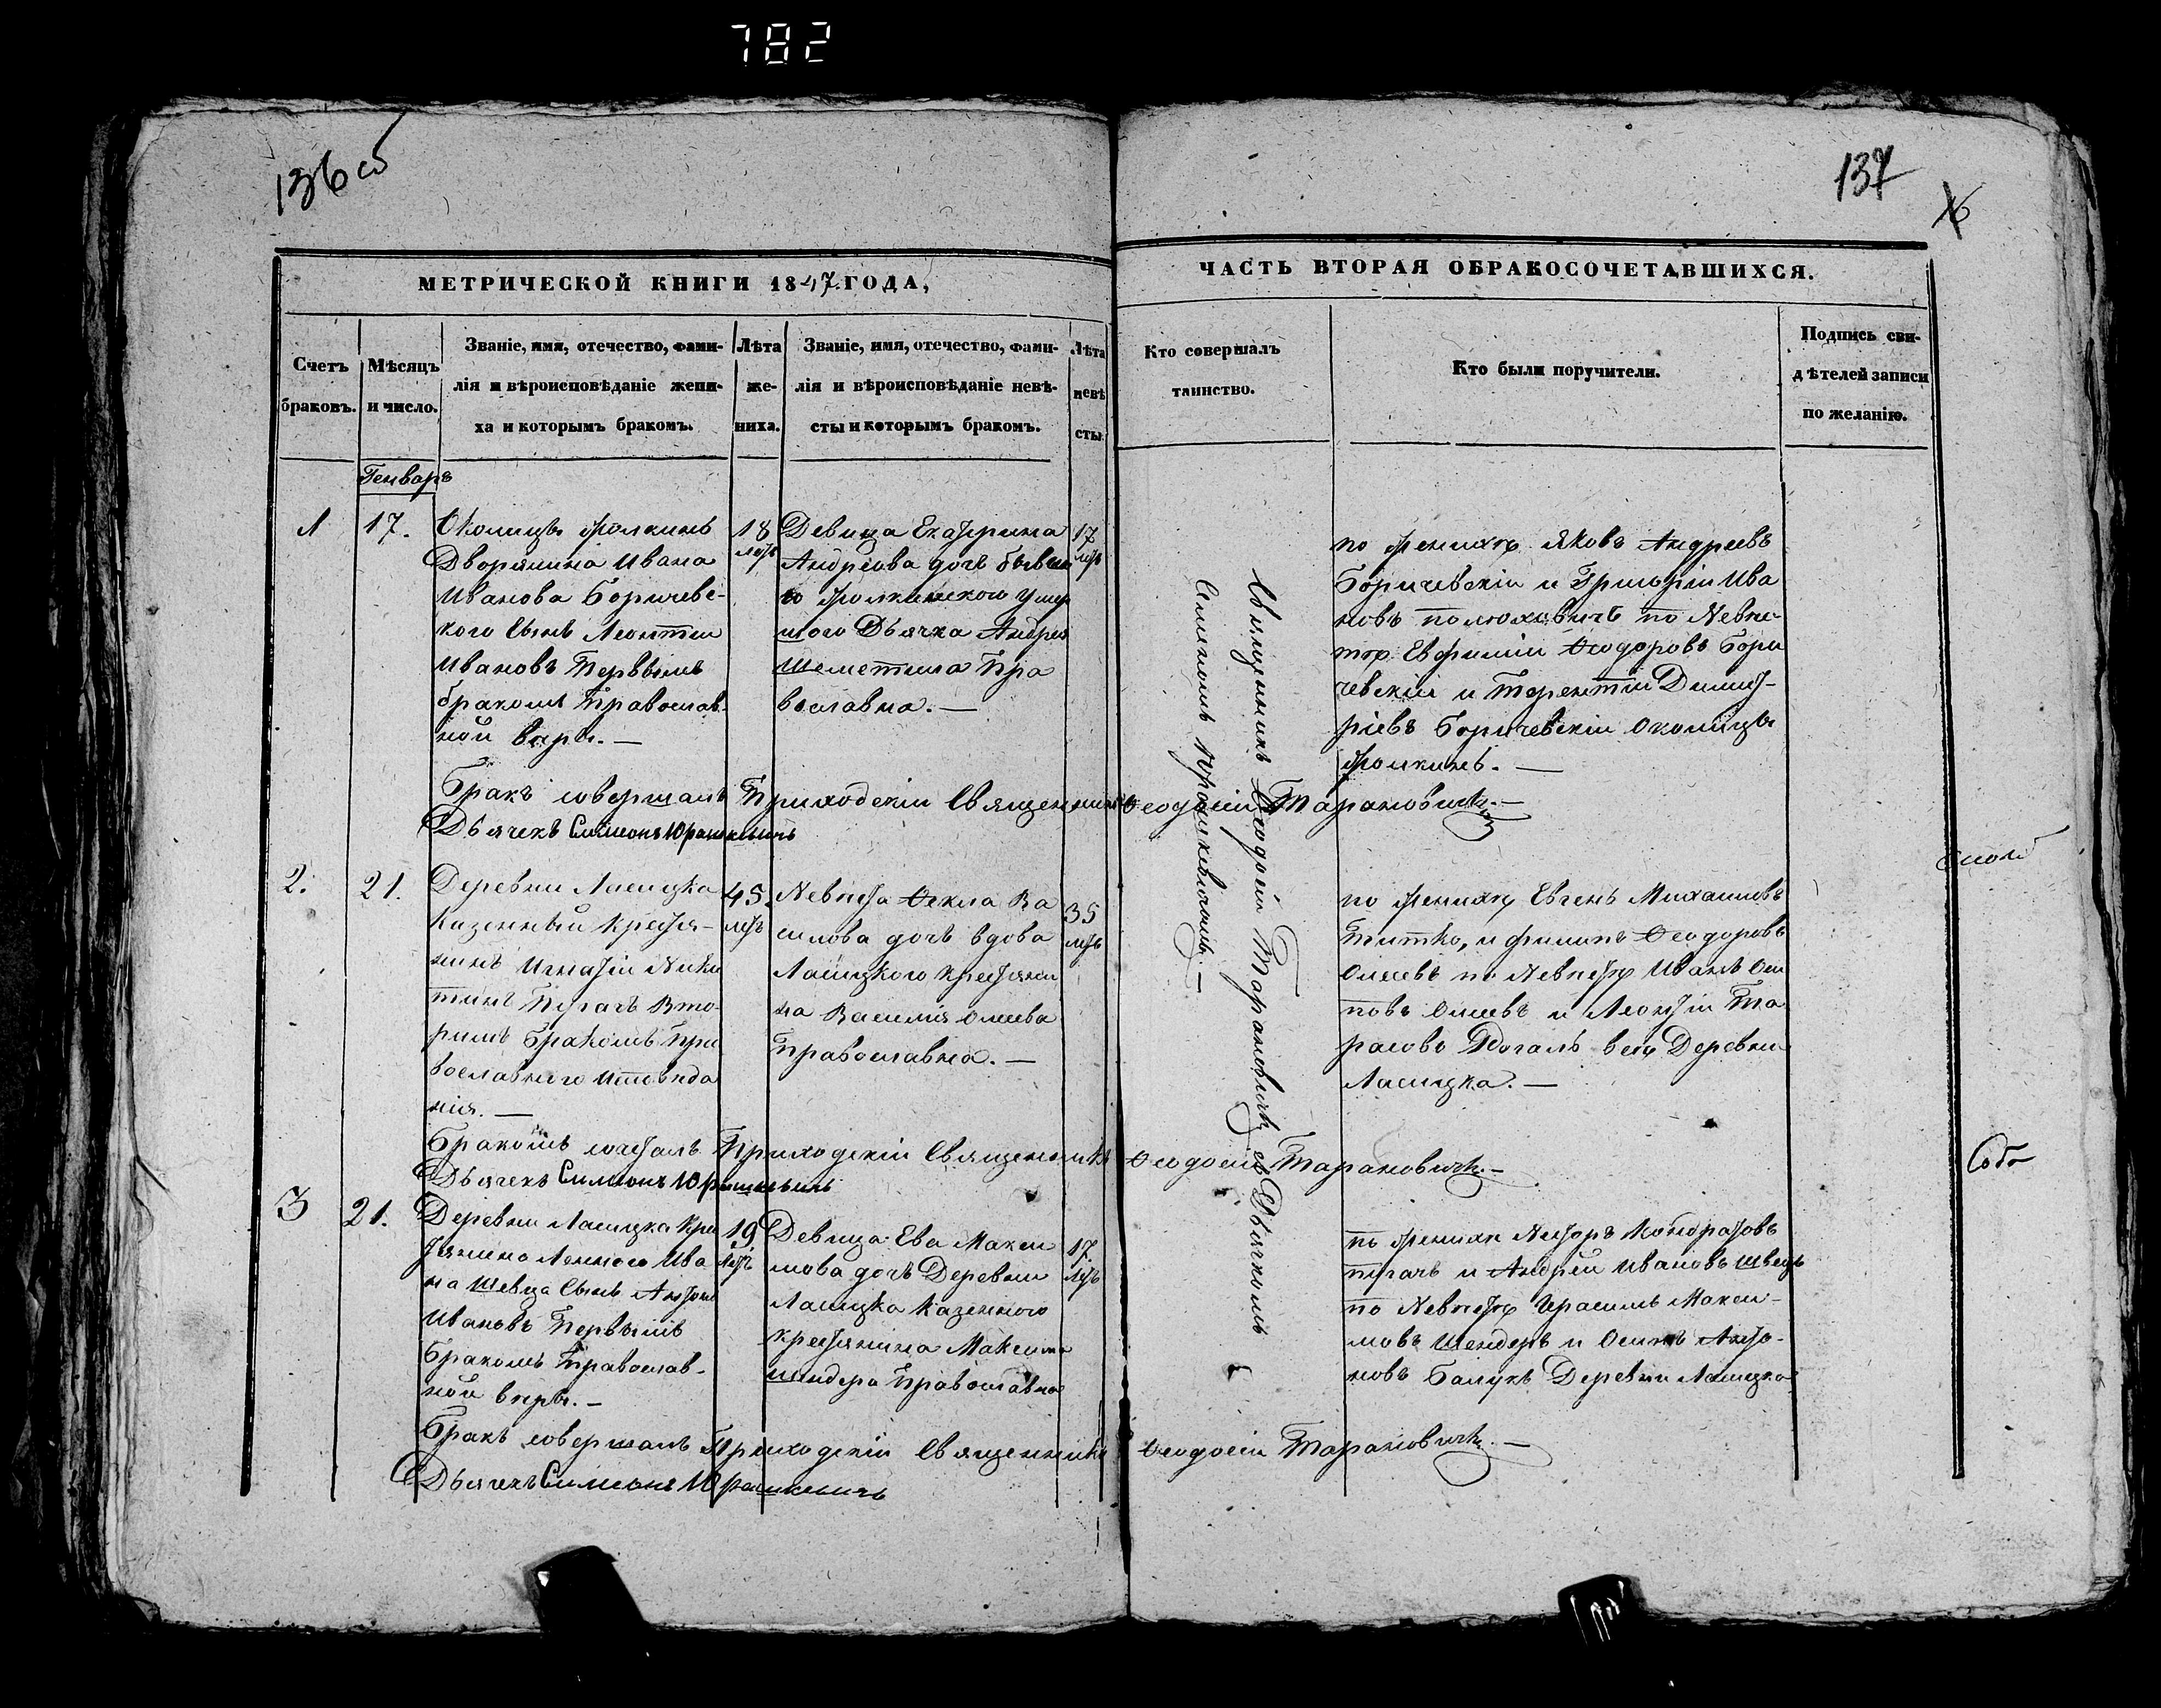 782
136 об
137
МЕТРИЧЕСКОЙ КНИГИ 1847. ГОДА,
ЧАСТЬ ВТОРАЯ О БРАКОСОЧЕТАВШИХСЯ.
Счетъ
браковъ.
Мѣсяцъ
и число.
Званіе, имя, отечество, фами-
лія и вѣроисповѣданіе жени-
ха и которымъ бракомъ.
Лѣта
же-
ниха.
Званіе, имя, отечество, фами-
лія и вѣроисповѣданіе невѣ-
сты и которымъ бракомъ.
Лѣта
невѣ
сты.
Кто совершалъ
таинство.
Кто были поручители.
Подпись сви-
дѣтелей записи
по желанію.
Генварь
1
17.
Околицы Фролкинъ
Дворянина Ивана
Иванова Боричевс-
кого Сынъ Леонтіи
Ивановъ Первымъ
бракомъ Православ-
ной вѣры. —
18
летъ
Девица Екатерина
Андріова дочь бывша
го Фролкинского умер
шого Дьячка Андрея
Шеметила Пра
вославна. —
17
летъ
по жениху Яковъ Андреевъ
Боричевскіи и Григоріи Ива
новъ Полюховичъ по Невѣс-
те Евфиміи Феодоровъ Бори
чевскіи и Терентіи Димит-
ріевъ Боричевскіи Околицы
Фролкинъ. —
Бракъ совершалъ Приходскіи Священникъ Феодосіи Тарановичъ. —
Дьячекъ Симеонъ Юрашкевичъ
Священникъ Феодосіи Тарановичъ съ Дьячкомъ
Симеономъ Юрашкевичомъ. —
2.
21.
Деревни Ласицка
Казенный Кресть-
нинъ Игнатіи Ники
тинъ Пугачъ Вто-
римъ Бракомъ Пра
вославного Исповѣда
нія. —
45.
летъ
Невѣста Фекла Ва
силова дочь вдова
Ласицкого крестяни
на Василія Олиева
Православна. —
35
летъ
по жениху Евгенъ Михаиловъ
Титко, и Филипъ Феодоровъ
Олиевъ по Невѣсту Иванъ Оси
повъ Олиевъ и Леонтіи Та
расовъ Догалъ всѣ Деревни
Ласицка. —
Бракомъ сочеталъ Приходскіи Священникъ Феодосіи Тарановичъ. —
Дьячекъ Симеонъ Юрашкевичъ
3
21.
Деревни Ласицка Кре
тянина Ленного Ива
на Шевца Сынъ Антони
Ивановъ Первымъ
Бракомъ Православ-
ной вѣры. —
19
летъ
Девица Ева Макси
мова дочь Деревни
Ласицка Казенного
крестянина Максима
Шендера Православна
17.
летъ
по жениху Несторъ Кондратовъ
Пугачъ и Андреи Ивановъ Швецъ
по Невѣсту Герасимъ Макси-
мовъ Шендеръ и Осипъ Анто-
новъ Балукъ Деревни Ласицка
Бракъ совершалъ Приходскіи Священникъ Феодосіи Тарановичъ. —
Дьячекъ Симеонъ Юрашкевичъ